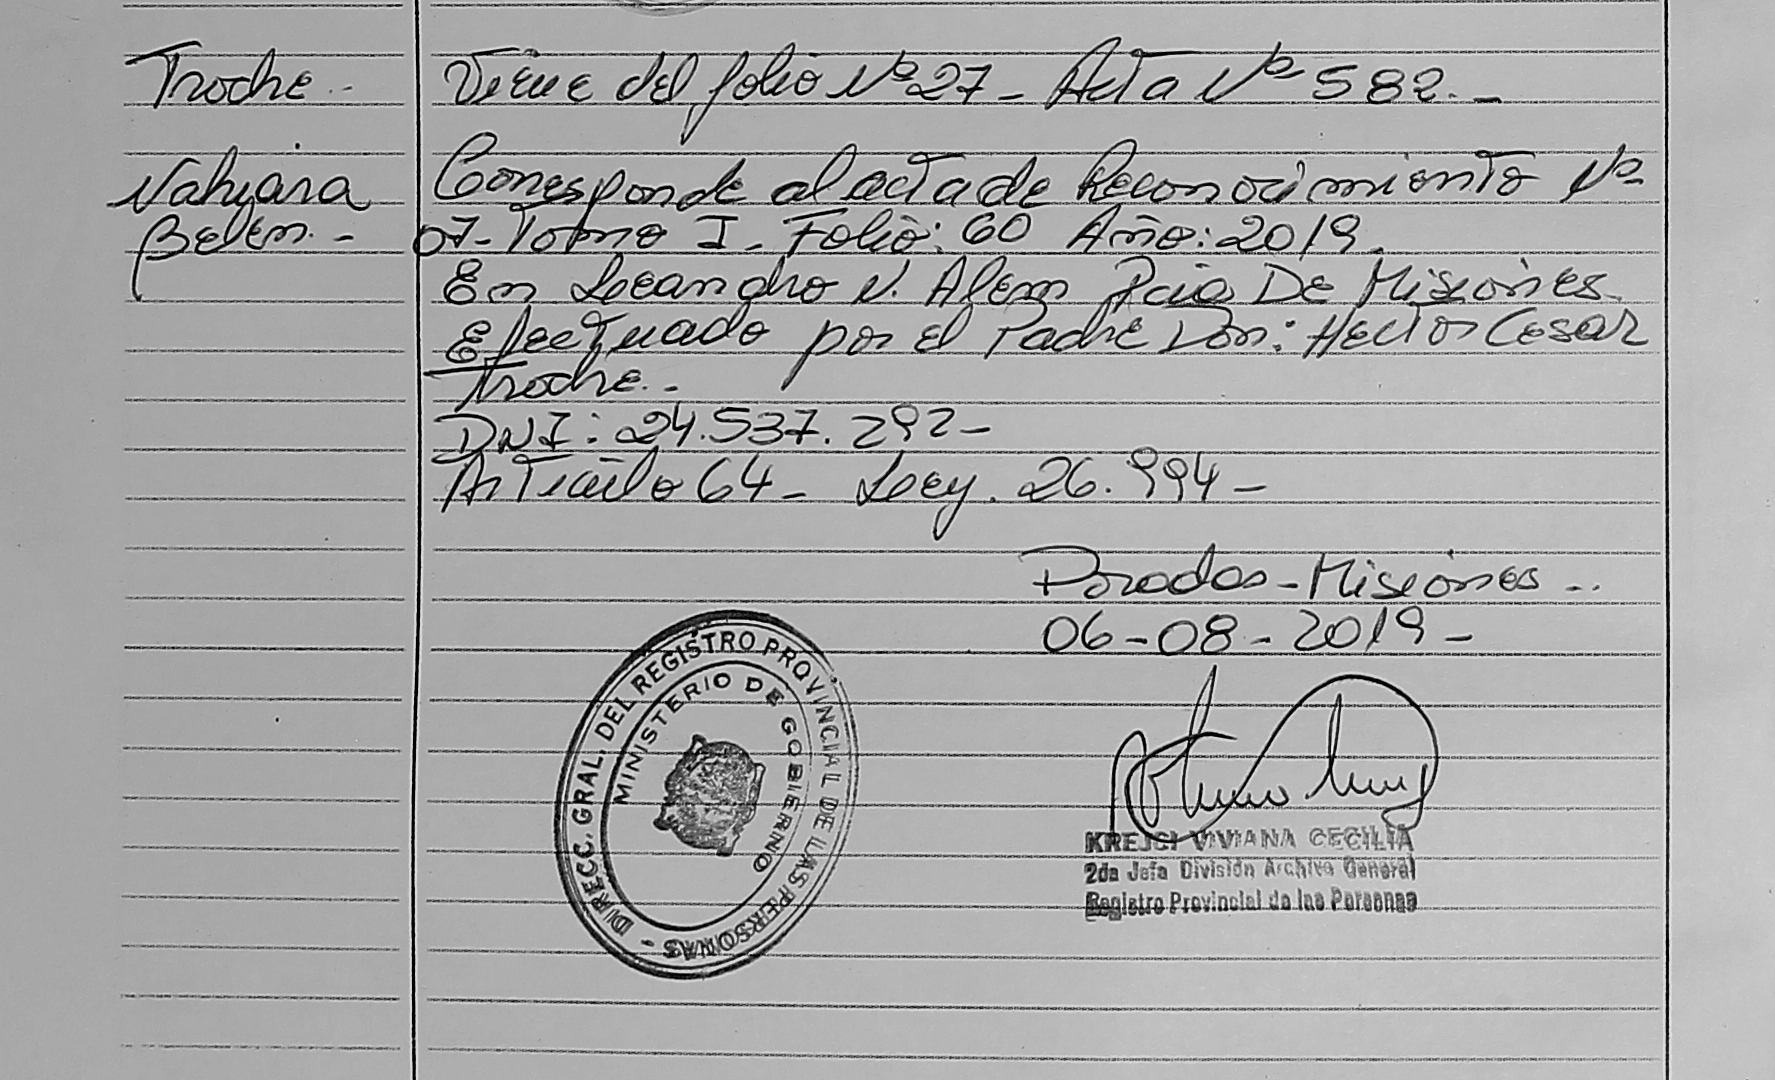 Troche.-
Viene del folio Nº 27 - Acta Nº 582.-
Nahiara
Belen.-
Corresponde al acta de Reconocimiento Nº
07- Tomo I - Folio: 60 Año: 2019.
En Leandro N. Alem Pcia De Misiones.
Efectuado por el Padre Don: Hector Cesar
Troche.-
DNI: 24.537.292-
Articulo 64- Ley. 26.994-
Posadas-Misiones..
06-08-2019-
DIRECC. GRAL. DEL REGISTRO PROVINCIAL DE LAS PERSONAS -
MINISTERIO DE GOBIERNO
KREJCI VIVIANA CECILIA
2da Jefa División Archivo General
Registro Provincial de las Personas